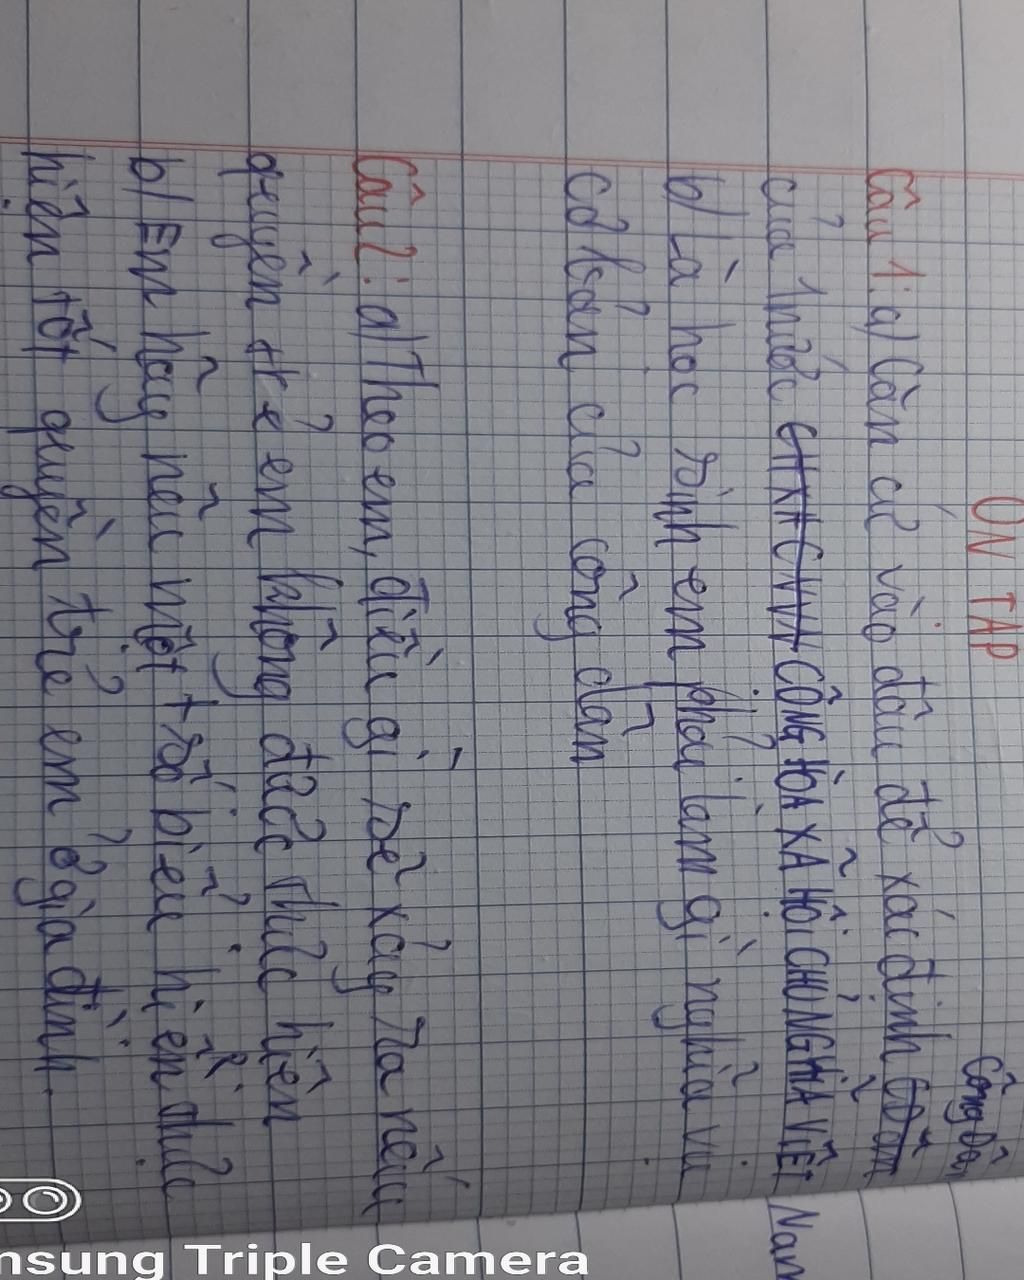 ÔN TẬP
Câu 1: a) Căn cứ vào đâu để xác định Công Dân
của nước CỘNG HÒA XÃ HỘI CHỦ NGHĨA VIỆT Nam
b) Là học sinh em phải làm gì nghĩa vụ
cơ bản của công dân
Câu 2: a) Theo em, điều gì sẽ xảy ra nếu
quyền trẻ em không được thực hiện
b) Em hãy nêu một số biểu hiện thực
hiện tốt quyền trẻ em ở gia đình.
nsung Triple Camera